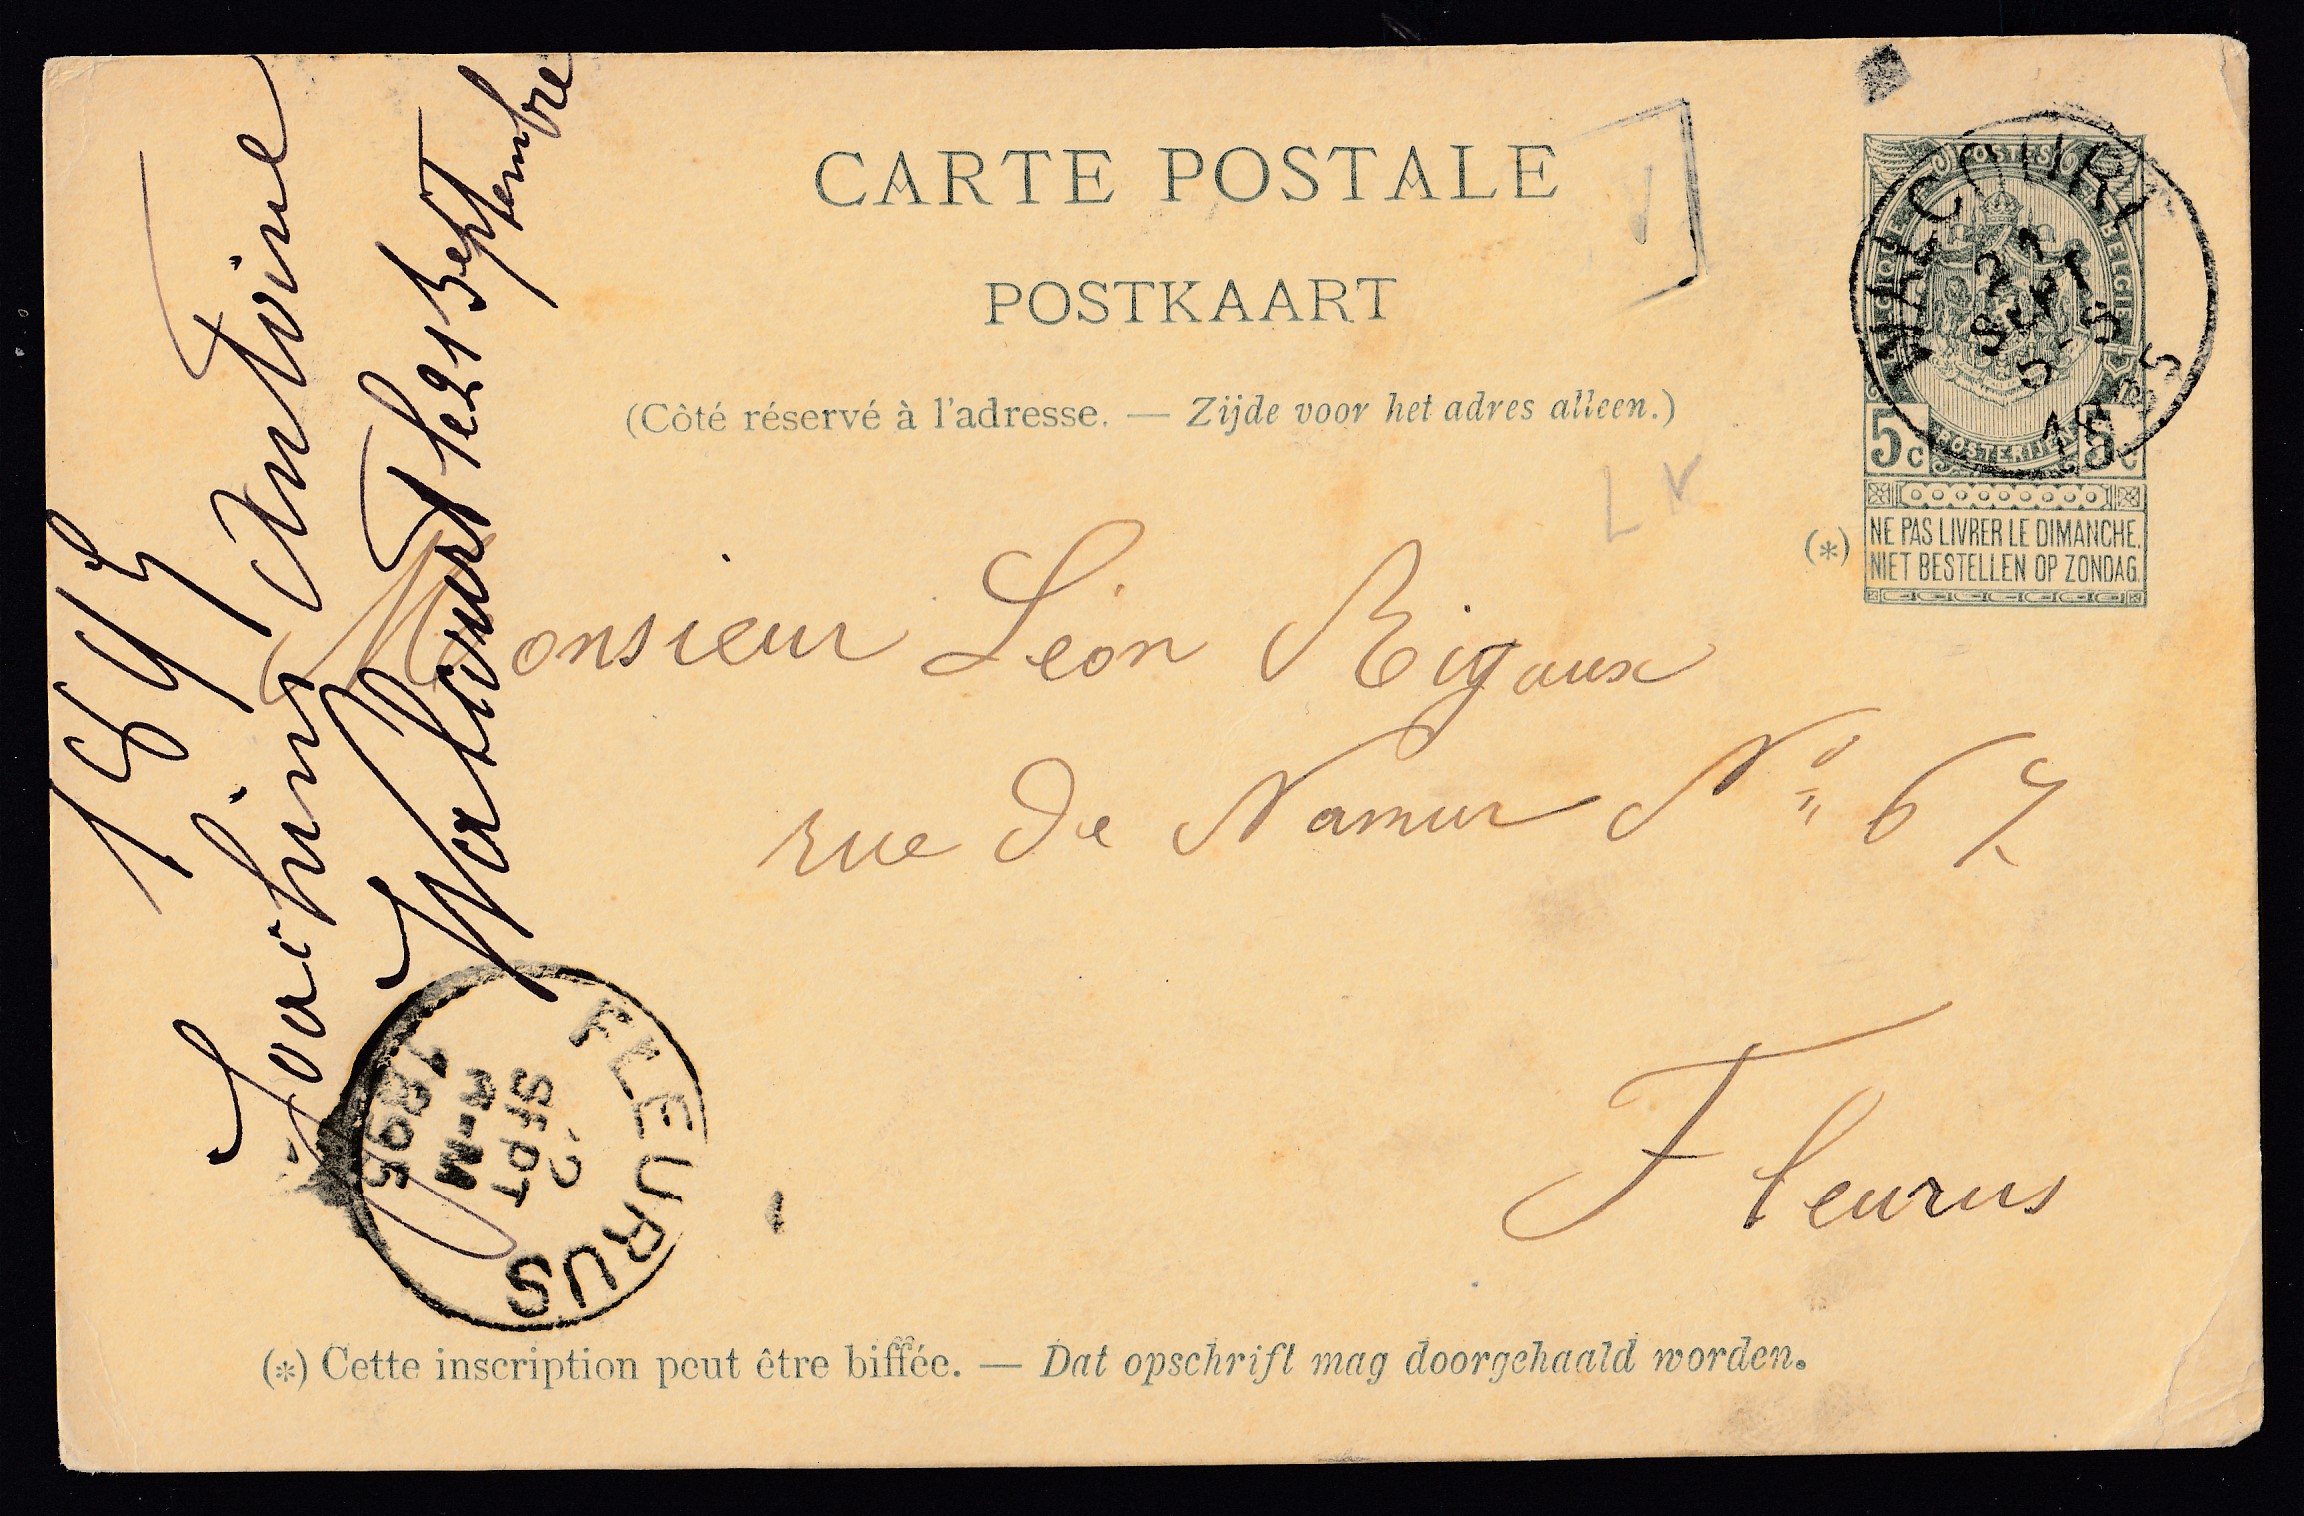 CARTE POSTALE
POSTKAART
(Côté réservé à l'adresse. — Zijde voor het adres alleen.)
POSTES
BELGIQUE
BELGIË
POSTERIJEN
5c 5c
(*) NE PAS LIVRER LE DIMANCHE.
NIET BESTELLEN OP ZONDAG.
WALCOURT
21
SEPT
5-S
Monsieur Léon Rigaux
rue de Namur No 67
Fleurus
Joachim Antoine
Walcourt le 21 Septembre
FLEURUS
SEPT
1895
(*) Cette inscription peut être biffée. — Dat opschrift mag doorgehaald worden.